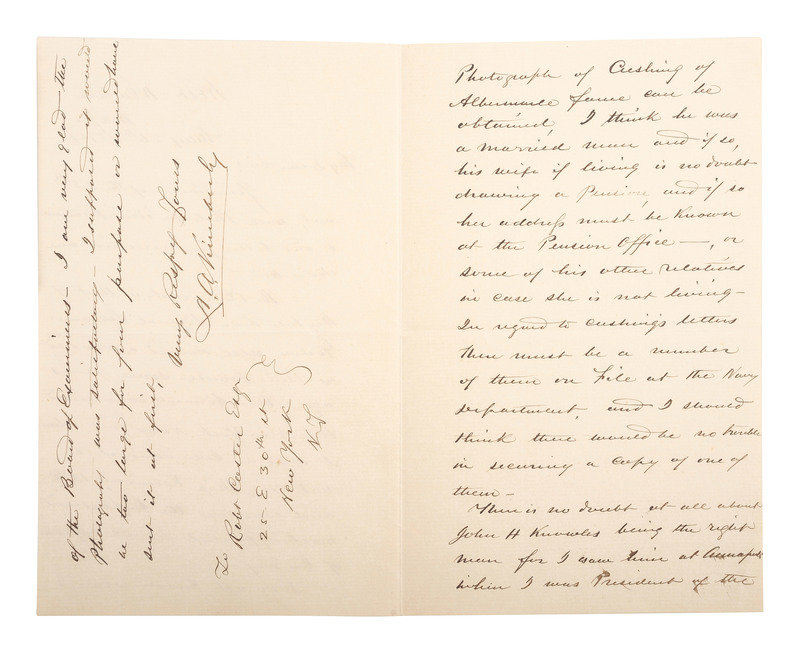 Photograph of Cushing of
Albermarle fame can be
obtained, I think he was
a married man and if so,
his wife if living is no doubt
drawing a Pension, and if so
her address must be Known
at the Pension Office —, or
some of his other relatives
in case she is not living —
In regard to Cushings letters
there must be a number
of them on File at the Navy
Department, and I should
think there would be no trouble
in securing a copy of one of
them —
There is no doubt at all about
John H Knowles being the right
man for I saw him at Annapolis
when I was President of the
of the Board of Examiners — I am very glad the
Photograph was satisfactory — I supposed it would
be too large for your purpose or would have
sent it at first,
Very Respy Yours
L. A. Kimberly
To Robt Coster Esqr
25 E 30th st
New York
N Y